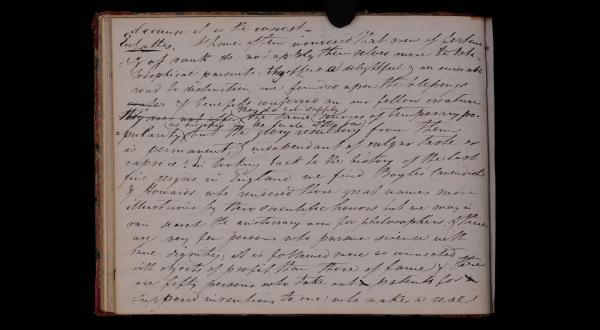 because it is the easiest –
I have often wondered that men of fortune
& of rank do not apply themselves more to phi-
losophical pursuits; they offer a delightful & an enviable
road to distinction, one founded upon the blessings
& benefits conferred on our fellow creatures
they do not supply
the same sources of temporary po-
in the
=pularity, but the glory resulting from them
is permanent & independant of vulgar taste or
caprice; in looking back to the history of the last
five reigns in England we find Boyles Cavendishes
& Howards who rendered those great names more
illustrious by their scientific honors but we may in
vain search the aristocracy now for philosophers, & there
are very few persons who pursue science with
true dignity; it is followed more as connected
with objects of profit than those of fame & there
are fifty persons who take out patents for
supposed inventions to one who make a real